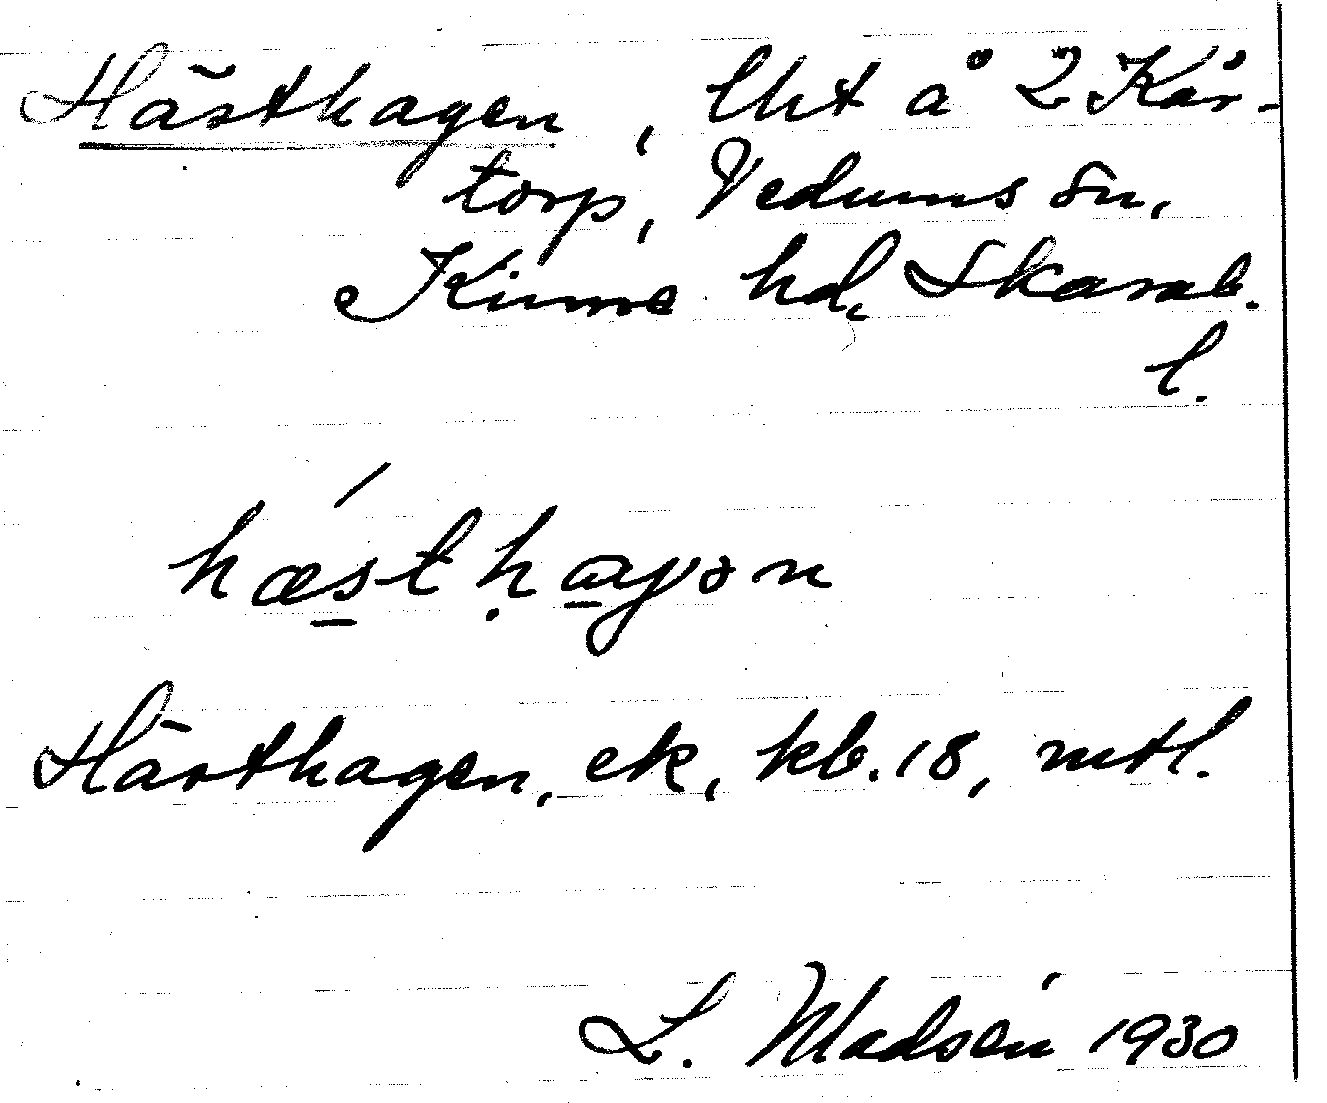 Hästhagen, lht å 2 Kår-
torp, Vedums sn,
Kinne hd, Skarab.
l.
hæsthaγən
Hästhagen, ek, kb. 18, mtl.
L. Madsén 1930